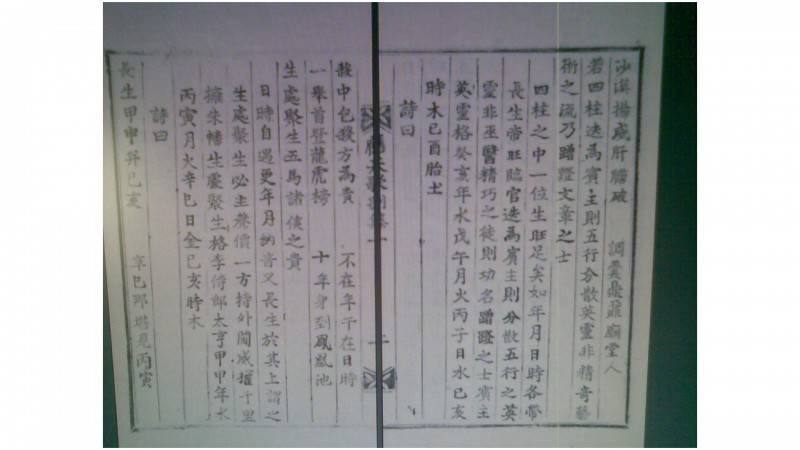 沙漠揚威肝膽破 調羹鼎鼐廟堂人
若四柱迭爲賓主則五行分散英靈非精奇藝
術之流乃蹭蹬文章之士
四柱之中一位生旺足矣如年月日時各帶
長生帝旺臨官迭爲賓主則分散五行之英
靈非巫醫精巧之徒則功名蹭蹬之士賓主
英靈格癸亥年水戊午月火丙子日水已亥
時木已酉胎土
詩曰
馥中包殺方爲貴 不在年干在日時
一舉首登龍虎榜 十年身到鳳凰池
生處聚生五馬諸侯之貴
日時自遇更年月納音又長生於其上謂之
生處聚生必主聲價一方持外閫威權千里
擁朱幡生處聚生格李侍郎太亨甲申年水
丙寅月火辛巳日金已亥時木
詩曰
長生甲申幷已亥 辛巳那堪見丙寅